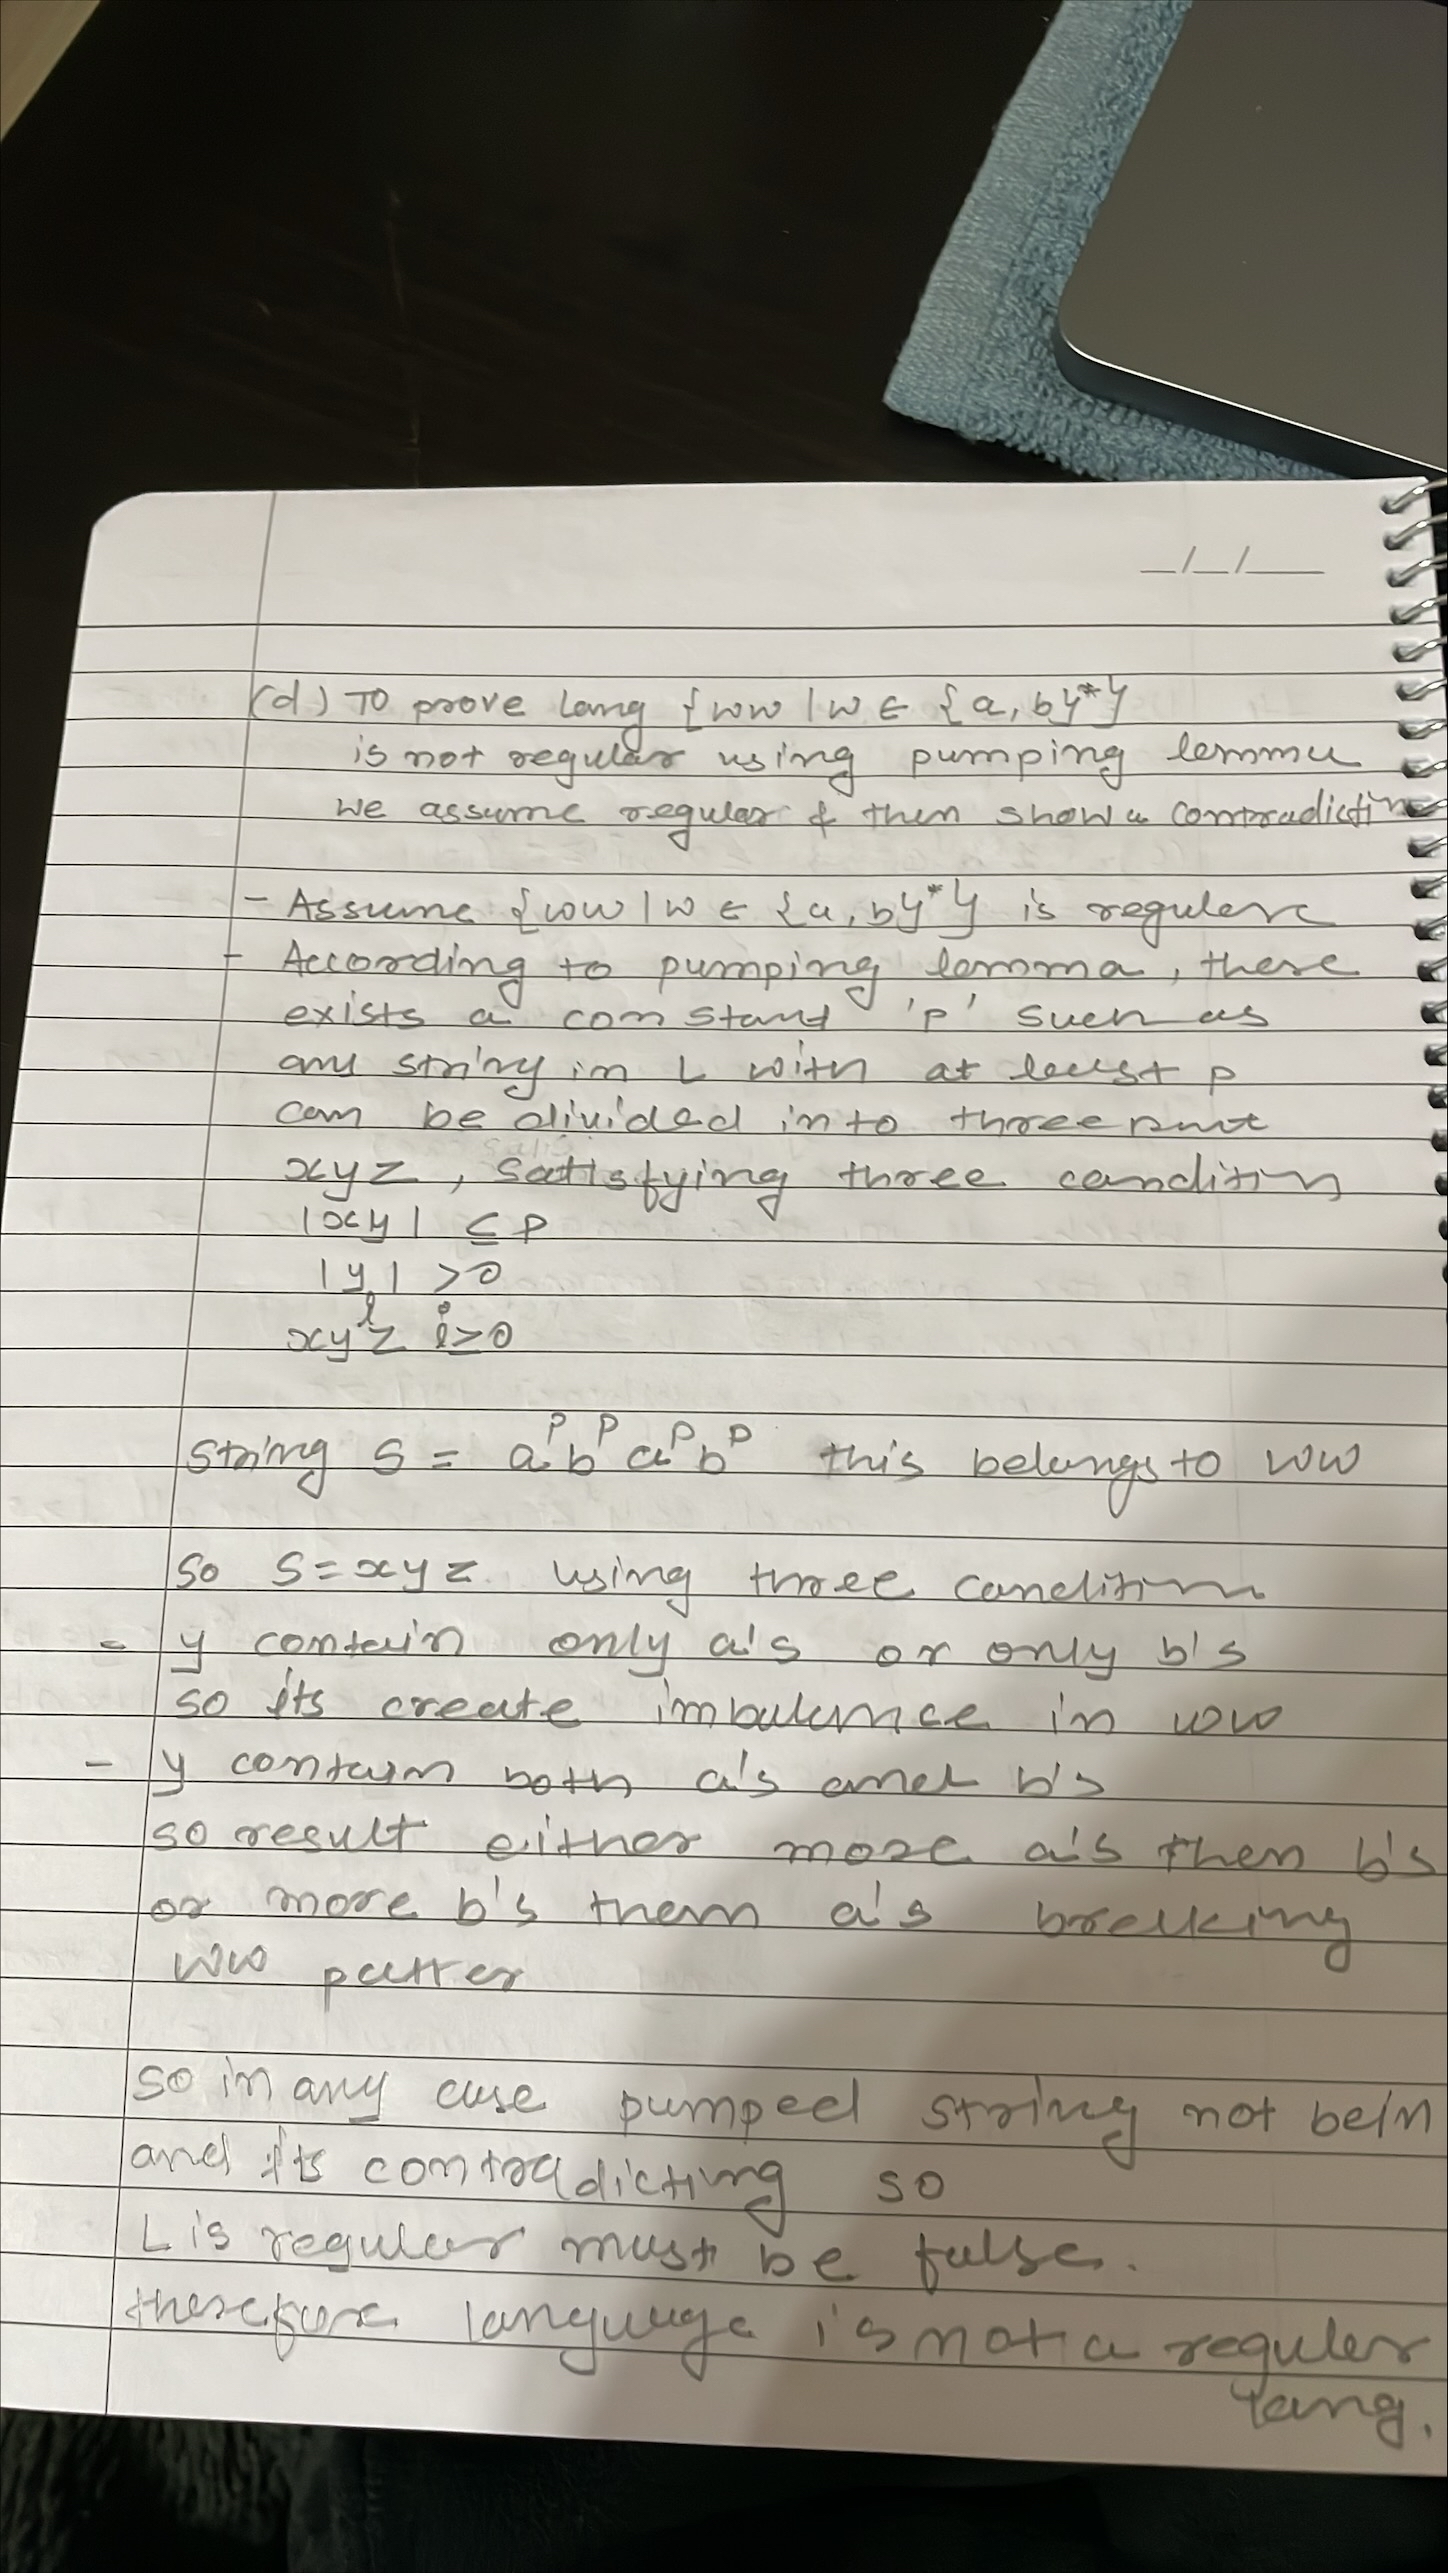 _/_/__
(d) To prove lang {ww | w ∈ {a, b}*}
is not regular using pumping lemma
we assume regular & then show a contradiction
- Assume {ww | w ∈ {a, b}*} is regular
- According to pumping lemma, there
exists a constant 'p' such as
any string in L with at least p
can be divided into three part
xyz, satisfying three condition
|xy| ≤ p
|y| > 0
xyⁱz i≥0
string S = aᵖbᵖaᵖbᵖ this belongs to ww
so S = xyz using three condition
- y contain only a's or only b's
so its create imbalance in ww
- y contain both a's and b's
so result either more a's then b's
or more b's them a's breaking
ww patter
so in any case pumped string not be in
and its contradicting so
L is regular must be false.
therefore language is not a regular
lang.